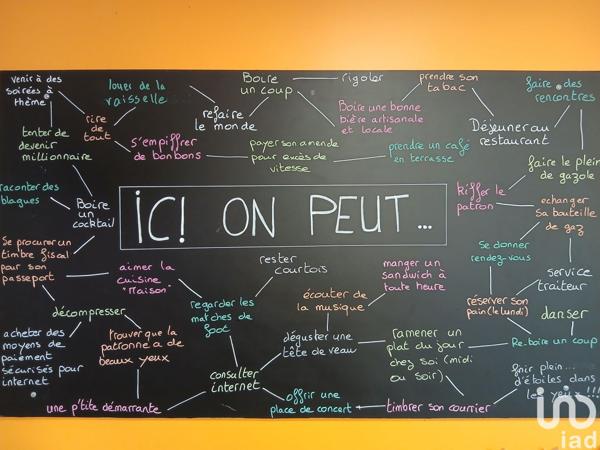 venir à des
soirées à
thème
louer de la
vaisselle
Boire
un coup
rigoler
prendre son
tabac
faire des
rencontres
refaire
le monde
Boire une bonne
bière artisanale
et locale
Déjeuner au
restaurant
rire
de
tout
tenter de
devenir
millionnaire
s'empiffrer
de bonbons
payer son amende
pour excès de
vitesse
prendre un café
en terrasse
faire le plein
de gazole
raconter des
blagues
Boire
un
cocktail
iCi ON PEUT...
kiffer le
patron
echanger
sa bouteille
de gaz
Se procurer un
timbre fiscal
pour son
passeport
aimer la
cuisine
"maison"
rester
courtois
manger un
sandwich à
toute heure
Se donner
rendez-vous
service
traiteur
regarder les
matches de
foot
écouter de
la musique
réserver son
pain (le lundi)
décompresser
danser
acheter des
moyens de
paiement
sécurisés pour
internet
trouver que la
patronne a de
beaux yeux
déguster une
tête de veau
ramener un
plat du jour
chez soi (midi
ou soir)
Re-boire un coup
consulter
internet
finir plein...
d'étoiles dans
les yeux !!!
une p'tite démarrante
offrir une
place de concert
timbrer son courrier
uno
iad